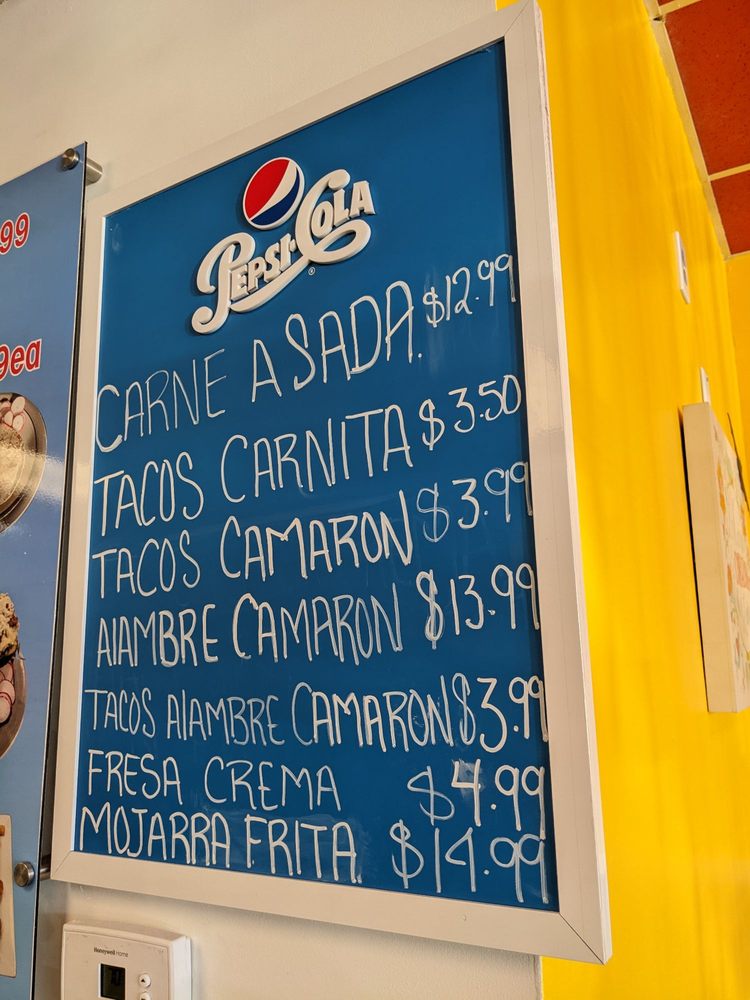 99
9ea
PEPSI·COLA
®
CARNE ASADA. $12.99
TACOS CARNITA $3.50
TACOS CAMARON $3.99
AlAMBRE CAMARON $13.99
TACOS AlAMBRE CAMARON $3.99
FRESA CREMA $4.99
MOJARRA FRITA $14.99
Honeywell Home